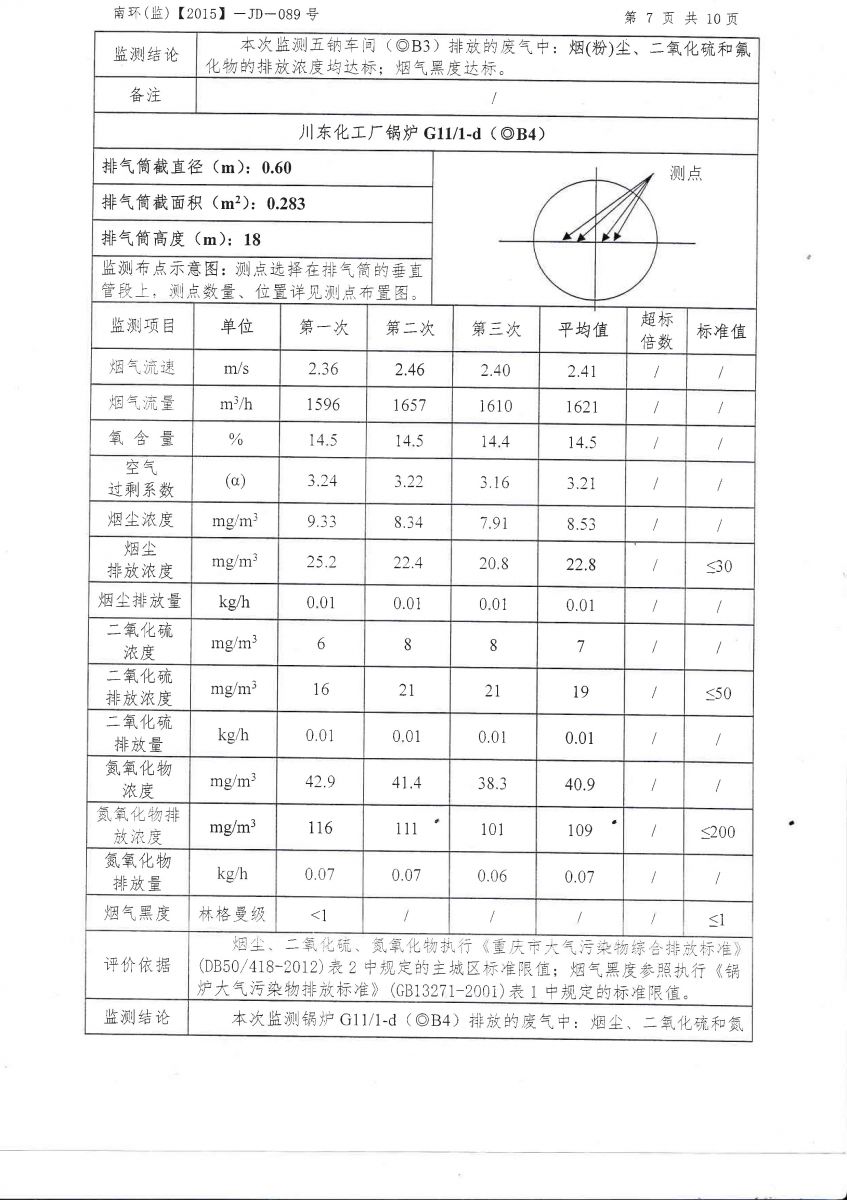 南环(监)【2015】－JD－089号
第 7 页 共 10 页
监测结论 本次监测五钠车间（◎B3）排放的废气中：烟(粉)尘、二氧化硫和氟
化物的排放浓度均达标；烟气黑度达标。
备注 /
川东化工厂锅炉 G11/1-d（◎B4）
排气筒截直径（m）：0.60
测点
排气筒截面积（m²）：0.283
排气筒高度（m）：18
监测布点示意图：测点选择在排气筒的垂直
管段上，测点数量、位置详见测点布置图。
监测项目 单位 第一次 第二次 第三次 平均值 超标
倍数 标准值
烟气流速 m/s 2.36 2.46 2.40 2.41 / /
烟气流量 m³/h 1596 1657 1610 1621 / /
氧 含 量 % 14.5 14.5 14.4 14.5 / /
空气
过剩系数 (α) 3.24 3.22 3.16 3.21 / /
烟尘浓度 mg/m³ 9.33 8.34 7.91 8.53 / /
烟尘
排放浓度 mg/m³ 25.2 22.4 20.8 22.8 / ≤30
烟尘排放量 kg/h 0.01 0.01 0.01 0.01 / /
二氧化硫
浓度 mg/m³ 6 8 8 7 / /
二氧化硫
排放浓度 mg/m³ 16 21 21 19 / ≤50
二氧化硫
排放量 kg/h 0.01 0.01 0.01 0.01 / /
氮氧化物
浓度 mg/m³ 42.9 41.4 38.3 40.9 / /
氮氧化物排
放浓度 mg/m³ 116 111 101 109 / ≤200
氮氧化物
排放量 kg/h 0.07 0.07 0.06 0.07 / /
烟气黑度 林格曼级 <1 / / / / ≤1
评价依据 烟尘、二氧化硫、氮氧化物执行《重庆市大气污染物综合排放标准》
(DB50/418-2012)表 2 中规定的主城区标准限值；烟气黑度参照执行《锅
炉大气污染物排放标准》(GB13271-2001)表 1 中规定的标准限值。
监测结论 本次监测锅炉 G11/1-d（◎B4）排放的废气中：烟尘、二氧化硫和氮